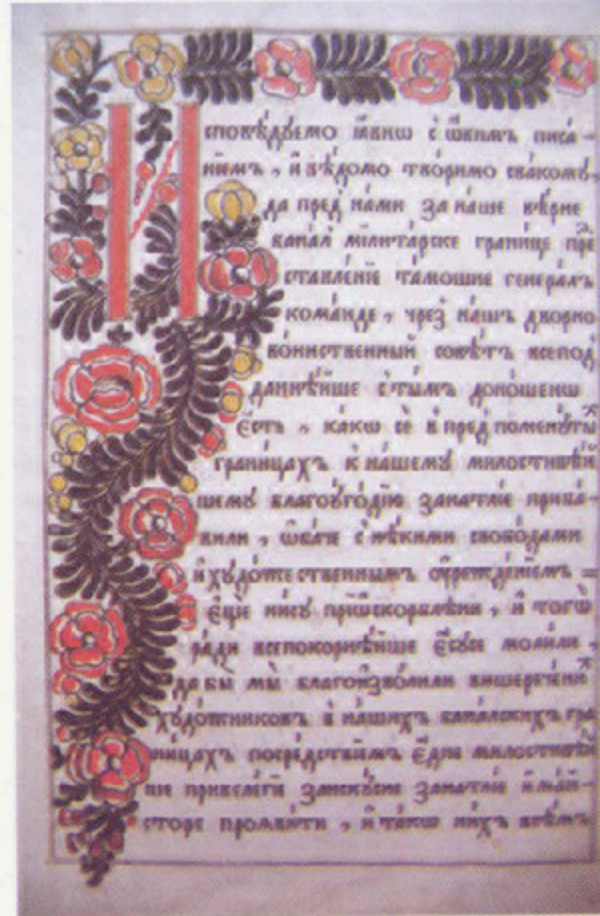 И
сповѣдуемо ꙗвнѡ с̾ ѡвимъ писа-
нїемъ, и вѣдомо творимо свакому,
да пред̾ нами за наше вѣрне
банал̾ милитарске границе пре
ставленїе тамошне генералъ
команде, чрез̾ нашъ дворно
воинственный совѣтъ всепод
даннѣйше с̾тымъ доношенш
єсть, какѡ се в̾ пред̾поменꙋты
границахъ к̾ нашемꙋ милостивѣй
шемꙋ благоꙋгодїю занатлїе приба-
вили, ѡбаче с̾ нѣкими свободами
и хꙋдожественнымъ ꙋчрежденїемъ =
єще нисꙋ приѡскорблѣни, и тогѡ
ради всепокорнѣйше єсꙋсе молили,
да бы мы благоизволили вишеречени
хꙋдожниковъ в̾ нашихъ баналскихъ гра
ницахъ посредствїемъ єдне милостивѣй
ше привелегїе занатлїе и май-
сторе проꙗвити, и такѡ нихъ всѣмъ